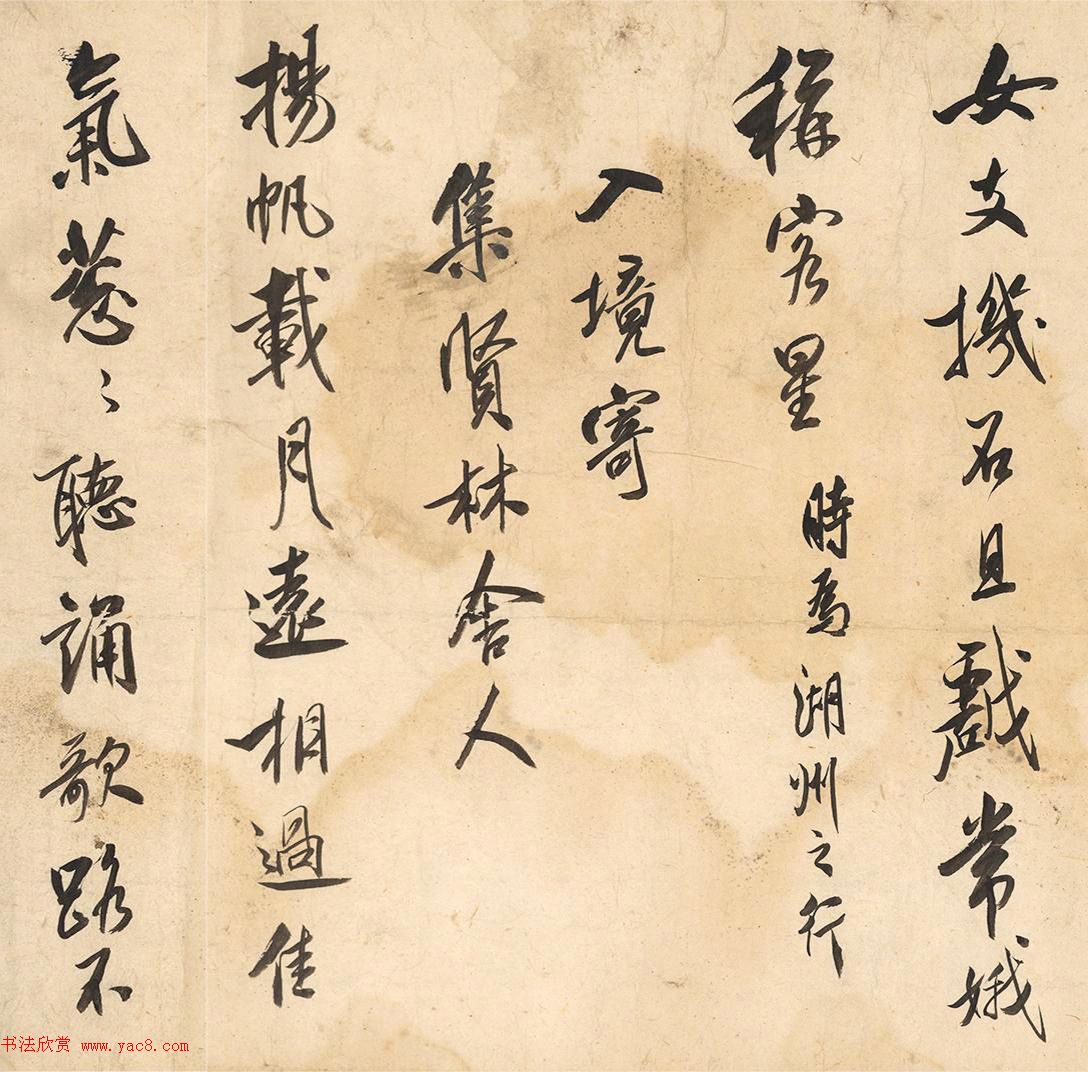 女支機石且戲常娥
稱客星 時為湖州之行
入境寄
集賢林舍人
揚帆載月遠相過佳
氣葱〻聽誦歌路不
书法欣赏 www.yac8.com